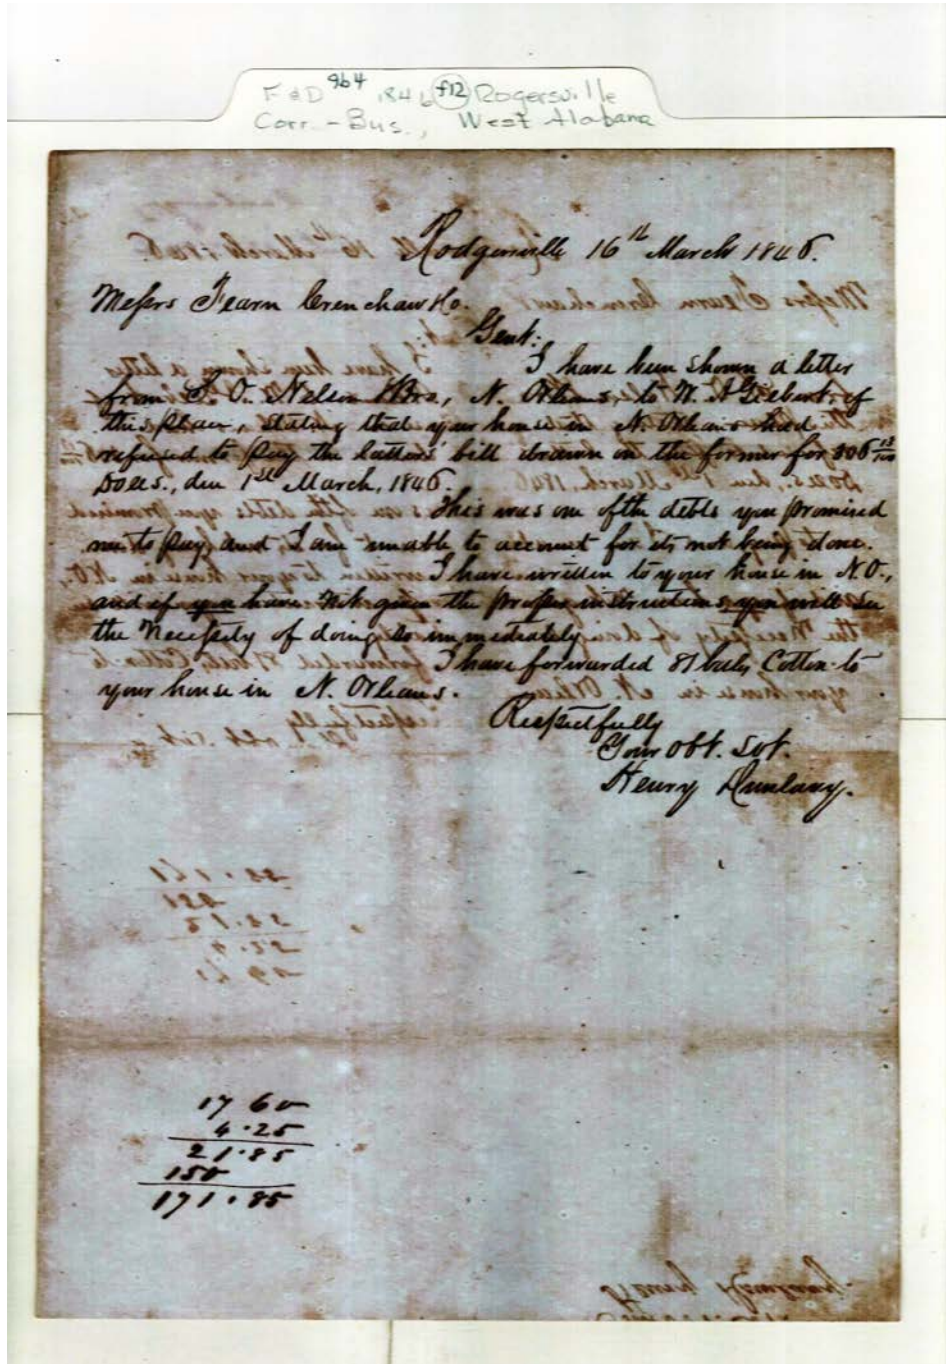 F & D 964 1846 f12 Rogersville
Corr. - Bus., West Alabama
Rodgersville 16th March 1846.
Messrs Fearn Crenshaw & Co.
Gent:
I have been shown a letter
from S. O. Nelson & Bro, N. Orleans, to W. A Gilbert, of
this place, stating that your house in N. Orleans had
refused to pay the latters' bill drawn on the former for 806 13/100
Dolls., due 1st March, 1846.
This was one of the debts you promised
me to pay, and I am unable to account for its not being done.
I have written to your house in N.O.,
and if you have not given the proper instructions, you will see
the necessity of doing so immediately.
I have forwarded 81 bales Cotton to
your house in N. Orleans.
Respectfully
Your obt. svt.
Henry Dunlavy.
17 60
4.25
21.85
150
171.85